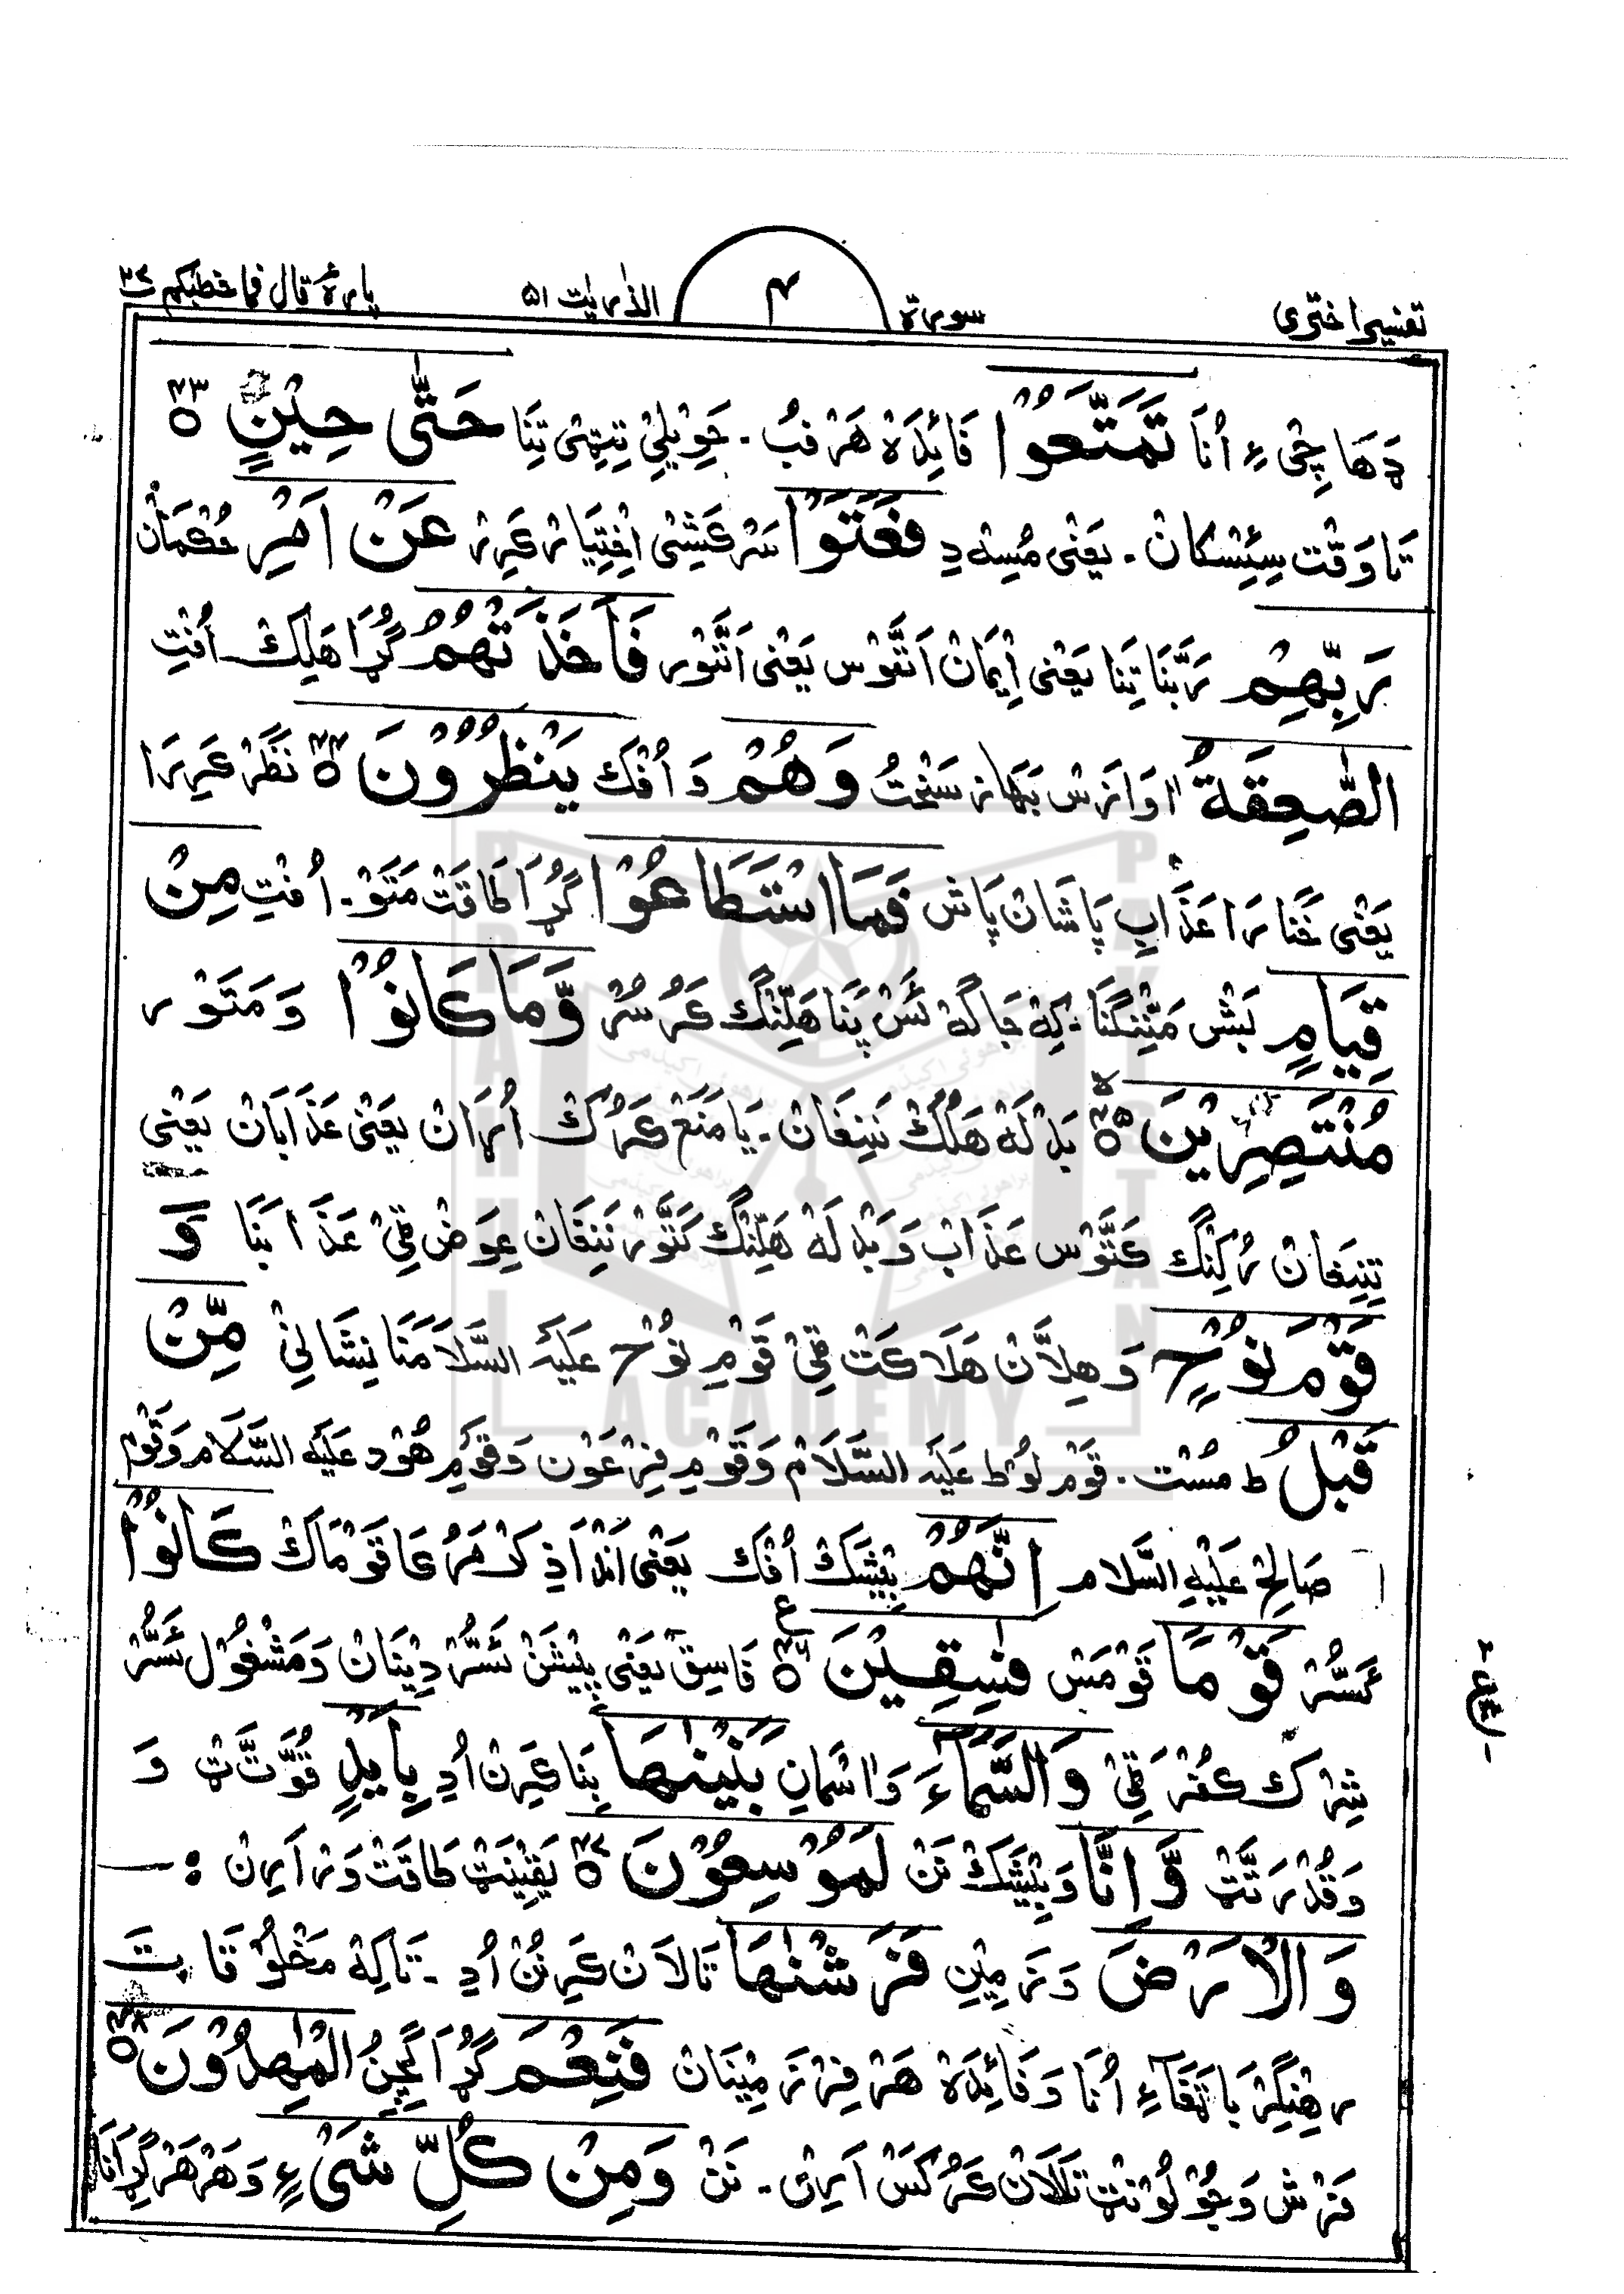 تفسیر اختری سورة ۴ الذریٰت ۵۱ پارهٔ قال فما خطبکم ۲۷
دَهَا چِیْ ءِ اُنَا تَمَتَّعُوْا فَائِدَهْ هَرْفبُ ۔ حَتّٰى حِيْنٍ ۴۳
تَا وَقْتِ سِیْسْکَانْ ۔ یَعْنٖی مُسِهْ دِ فَعَتَوْا سَرْکَشِیْ اِخْتِیَارْ کَرِیْر عَنْ اَمْرِ حُکْمَانْ
رَبِّهِمْ رَبَّنَا تِنَا یَعْنِی اِیْمَانْ اَتَّوْس یَعْنِی اَتَّوْر فَاَخَذَتْهُمُ گُڑَا هَلِکْ اُفْتِ
الصّٰعِقَةُ اوَازَسْ بَهَازْ سَخْتُ وَهُمْ وَ اُفْک يَنْظُرُوْنَ ۴۴ نَظَرْ کَرِیْرَا
یَعْنِی خَنَارَا عَذَابِ پَاشَانْ پَاش فَمَا اسْتَطَاعُوْا گُڑَا طَاقَتْ مَتَوْ ۔ اُفْتِ مِنْ
قِيَامٍ بَشْ مَنِّنْگَنَا ۔ کِهْ جَاگَهْ ئَسْ پَنَا هَلِّنْگ کَرُسُرْ وَّمَا كَانُوْا وَ مَتَوْر
مُنْتَصِرِيْنَ ۴۵ بَدْلَهْ هَلُکْ نَنِغَانْ ۔ یَا مَنَعْ کَرُکْ اُرَانْ یَعْنِی عَذَابَانْ یَعْنِی
تِنِغَانْ رُکِنْگ کَتَّوْس عَذَابْ وَ بَدْلَهْ هَلِّنْگ کَتَّوْر نَنِغَانْ عِوَضْ ٹِیْ عَذَابَنَا وَ
قَوْمَ نُوْحٍ وَ هِلَّانْ هَلَاکَتْ ٹِیْ قَوْمِ نُوْحْ عَلَیْهِ السَّلَامَنَا نِشَانِیْ مِّنْ
قَبْلُ ط مُسْت ۔ قَوْمِ لُوْط عَلَیْهِ السَّلَامْ وَ قَوْمِ فِرْعَوْن وَ قَوْمِ هُوْد عَلَیْهِ السَّلَام وَ قَوْمِ
صَالِحْ عَلَیْهِ السَّلَام اِنَّهُمْ بِیْشَکْ اُفْک یَعْنِی کَانُوْا
ئَسُّرْ قَوْمًا قَوْمَسْ فٰسِقِيْنَ ۴۶ ع فَاسِقْ یَعْنِی پِیْشَنْ ئَسُّرْ دِیْنَانْ وَ مَشْغُوْل ئَسُّرْ
شِرْک کُفْر ٹِیْ وَالسَّمَآءَ وَ اسْمَانِ بَنَيْنٰهَا بِنَا کَرِیْن اُدِ بِاَيْدٍ قُوَّتَّٹ وَ
وَ قُدْرَتَّٹ وَّاِنَّا وَ بِیْشَکْ نَنْ لَمُوْسِعُوْنَ ۴۷ یَقِیْنَٹ طَاقَتْ وَر اَرِیْن :۔
وَالْاَرْضَ وَ زَمِیْنِ فَرَشْنٰهَا تَالَانْ کَرِیْن نُنْ اُدِ ۔ تَاکِهْ مَخْلُوْقَات
رهِنْگِرْ بَا اُنَا وَ فَائِدَهْ هَرْفِرْ زَمِیْنَانْ فَنِعْمَ گُڑَا الْمٰهِدُوْنَ ۴۸
فَرْش وَ تَالَانْ کَرُکَسْ اَرِیْن ۔ نَنْ وَمِنْ كُلِّ شَيْءٍ وَ هَرْ هَرْ
PAKISTAN
BRAHUI
ACADEMY